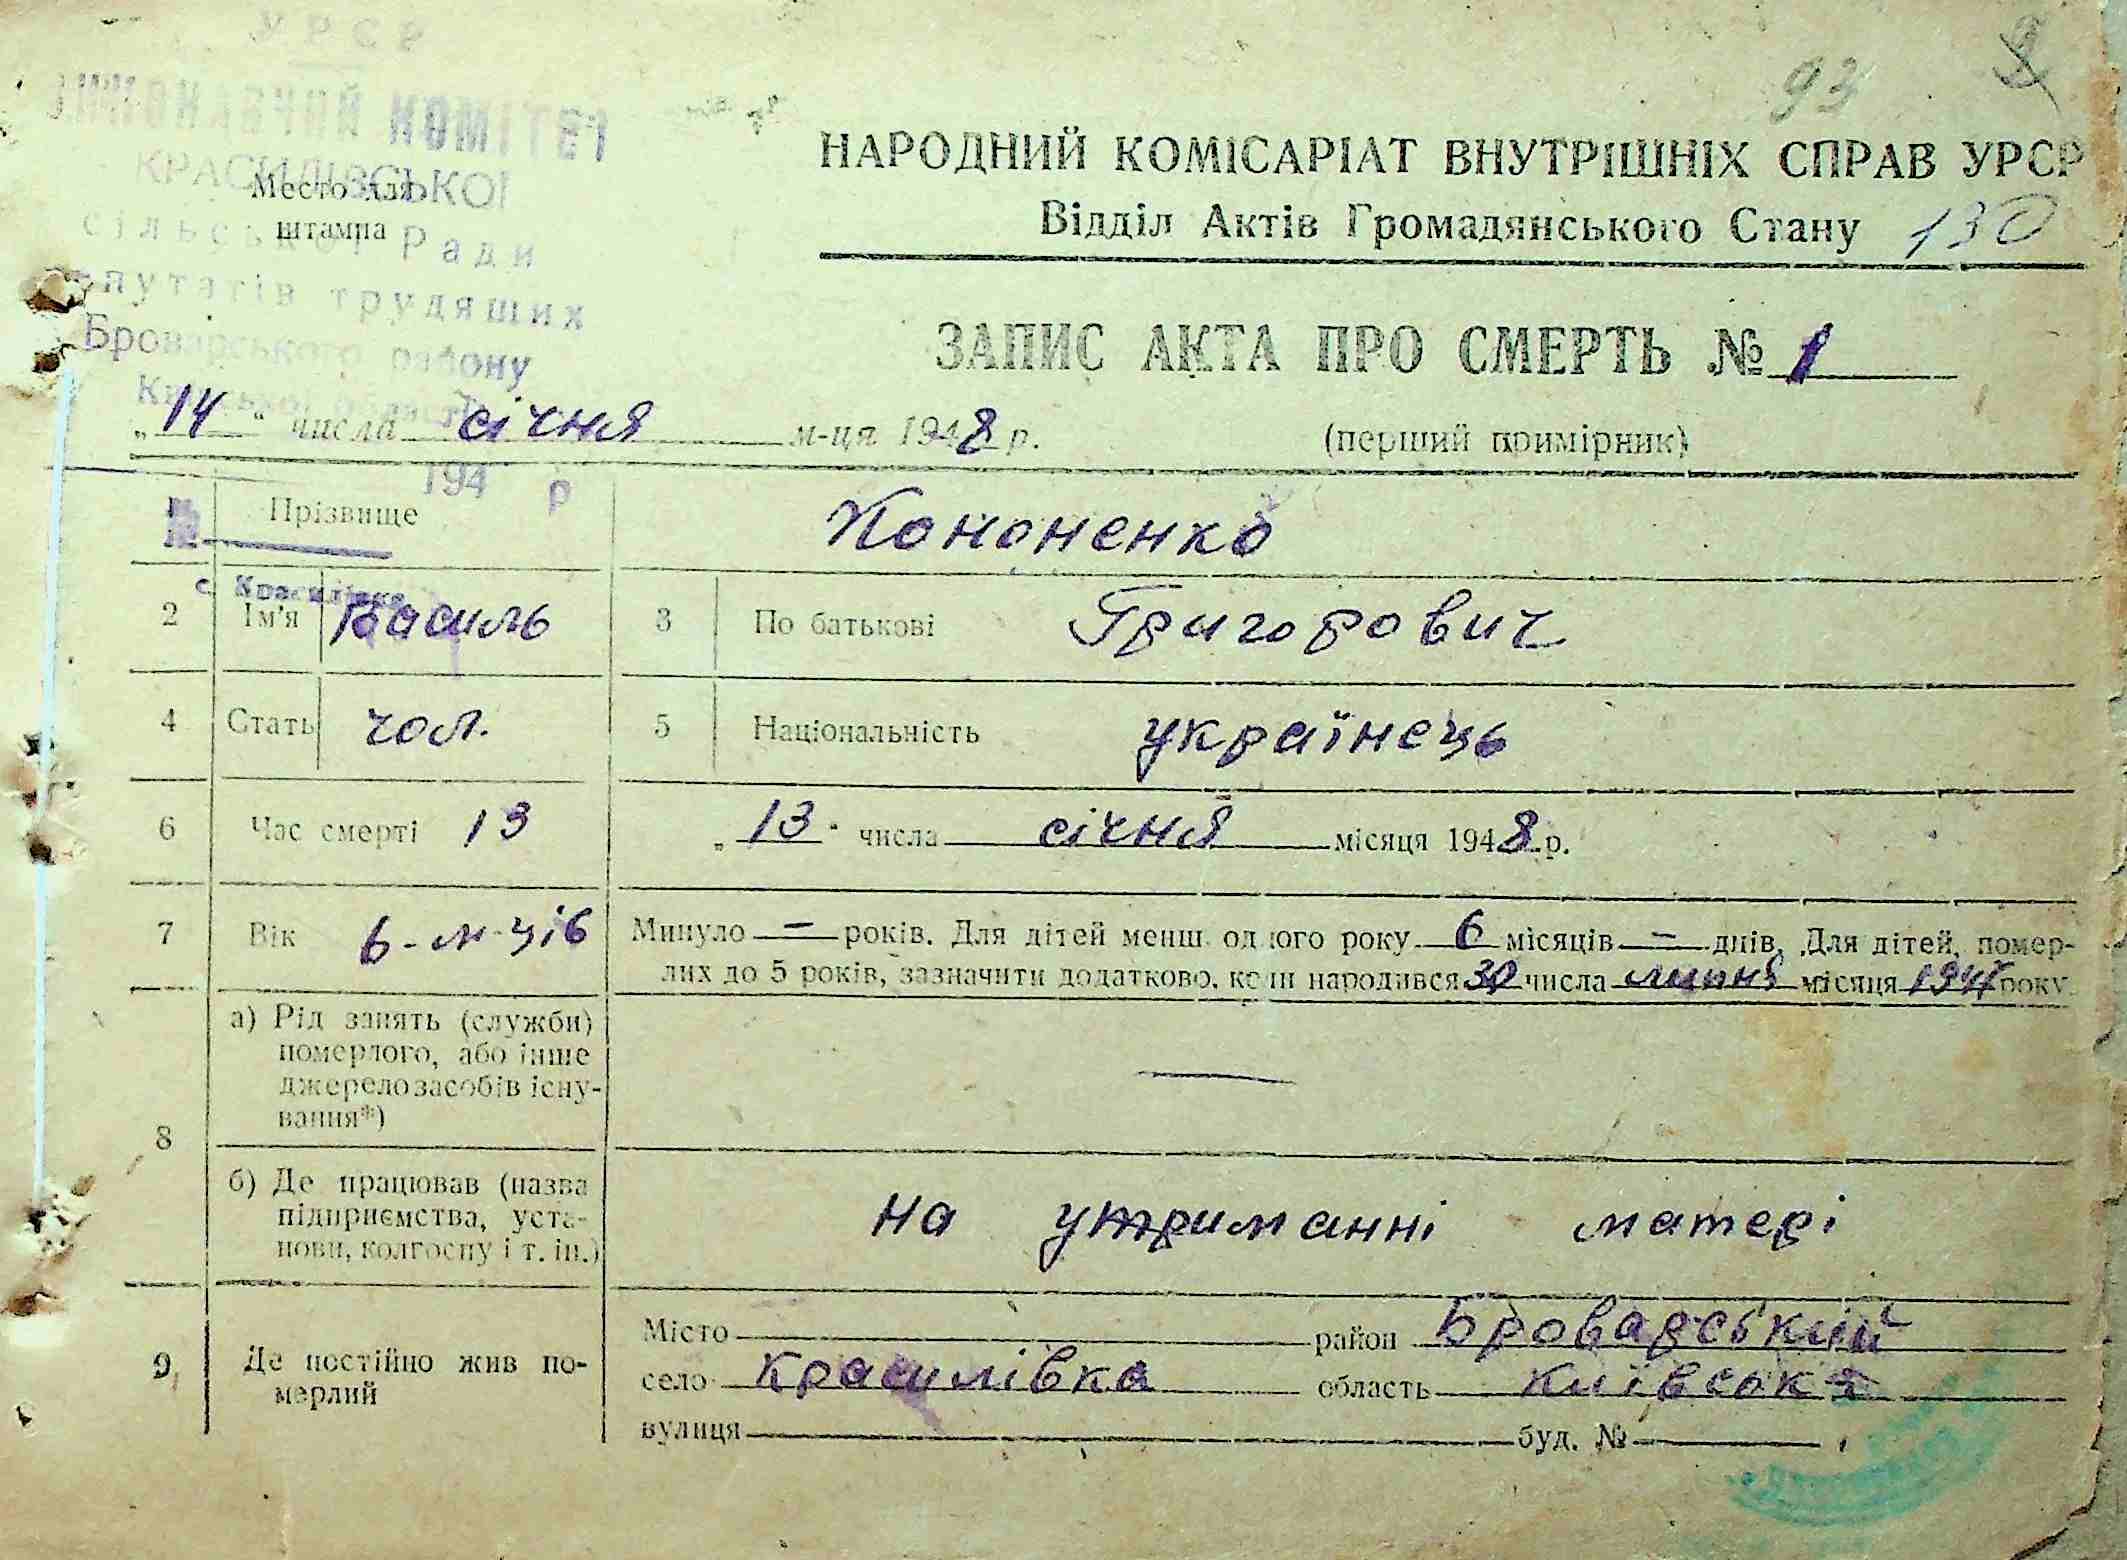 УРСР
ВИКОНАВЧИЙ КОМІТЕТ
КРАСИЛІВСЬКОЇ
сільської Ради
депутатів трудящих
Броварського району
Київської області
194 р
№
с. Красилівка
Место для
штампа
93
НАРОДНИЙ КОМІСАРІАТ ВНУТРІШНІХ СПРАВ УРСР
Відділ Актів Громадянського Стану 130
ЗАПИС АКТА ПРО СМЕРТЬ № 1
„14“ числа січня м-ця 1948 р.
(перший примірник)
Прізвище Кононенко
2 Ім'я Василь 3 По батькові Григорович
4 Стать чол. 5 Національність українець
6 Час смерті 13 „13“ числа січня місяця 1948 р.
7 Вік 6-м-ців Минуло — років. Для дітей менш одного року 6 місяців — днів. Для дітей, помер-
лих до 5 років, зазначити додатково, коли народився 30 числа липня місяця 1947 року.
8 а) Рід занять (служби)
померлого, або інше
джерело засобів існу-
вання*) —
б) Де працював (назва
підприємства, уста-
нови, колгоспу і т. ін.)
на утриманні матері
9 Де постійно жив по-
мерлий
Місто район Броварський
село Красилівка область Київська
вулиця буд. №